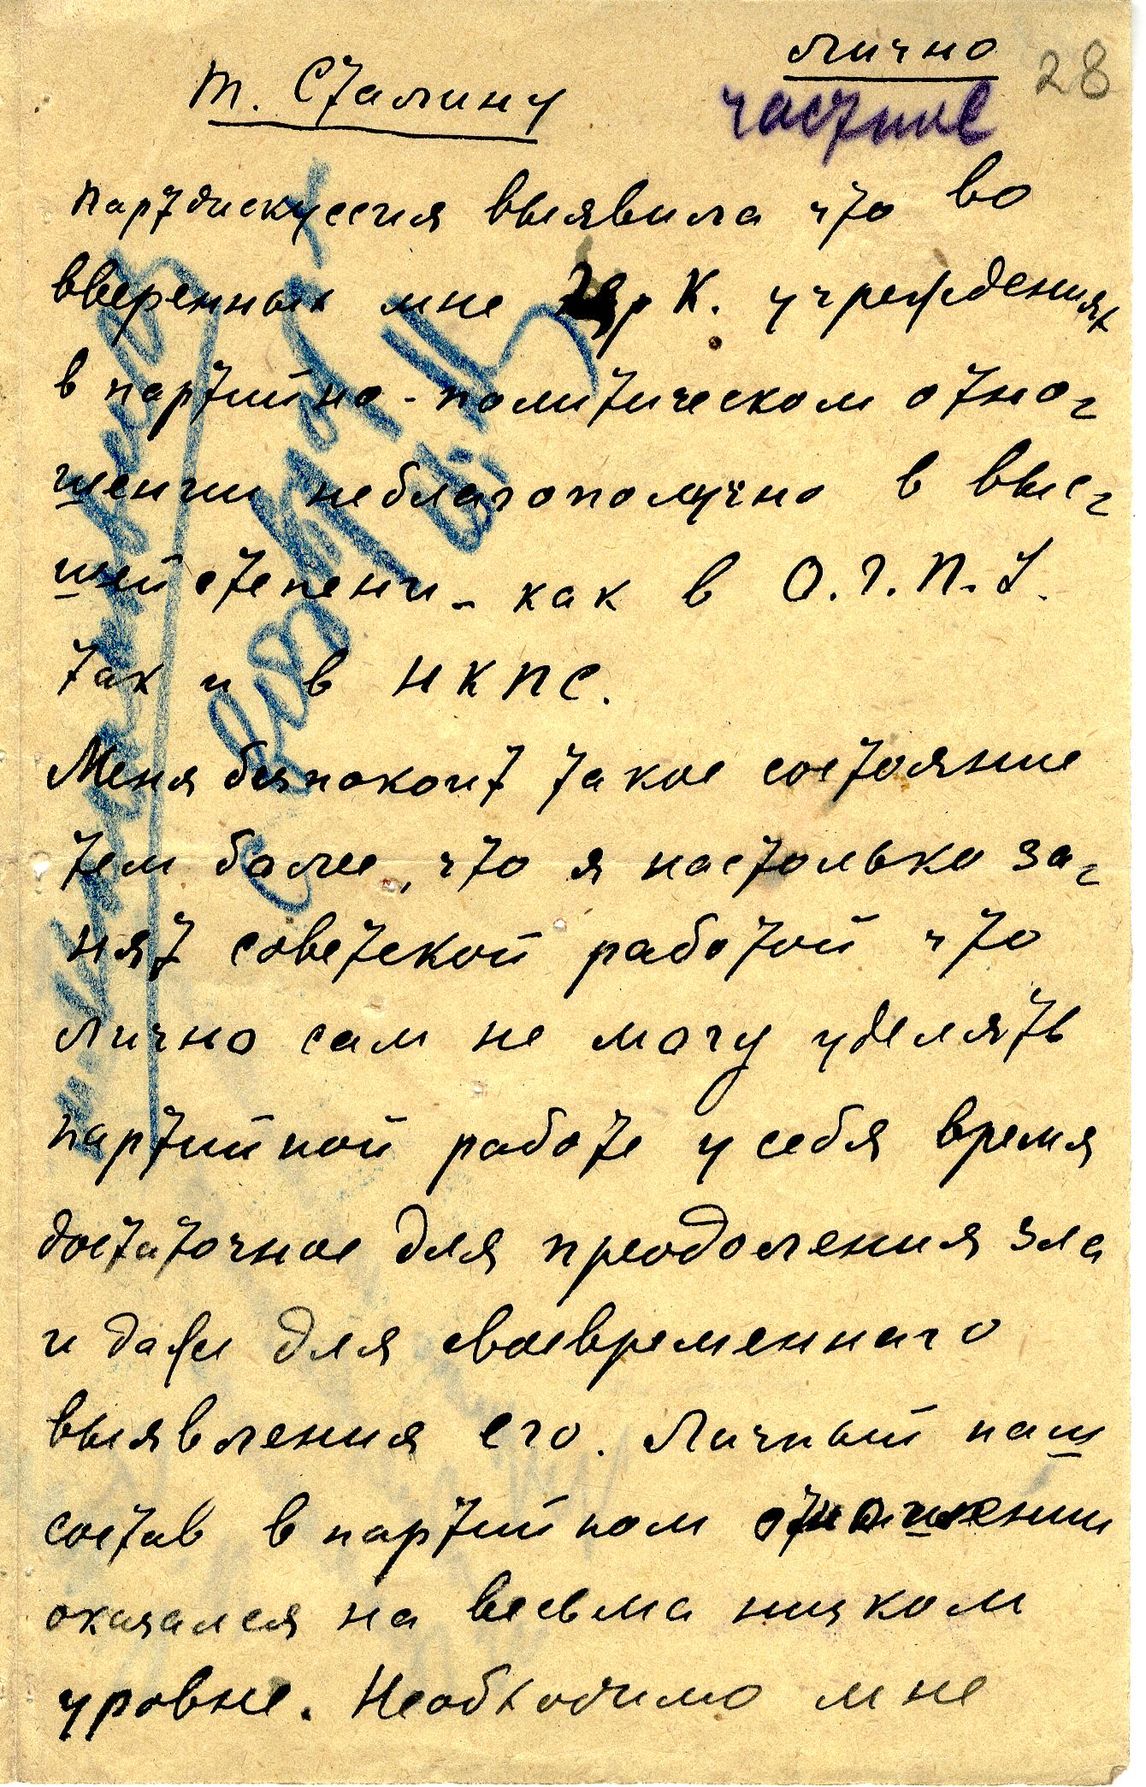 лично
28
т. Сталину
частное
партдискуссия выявила что во
вверенных мне К. учреждениях
в партийно-политическом отно-
шении неблагополучно в выс-
шей степени - как в О.Г.П.У.
так и в НКПС.
Меня бязпокоит такое состояние
тем более, что я настолько за-
нят советской работой что
лично сам не могу уделять
партийной работе у себя время
достаточное для преодоления зла
и даже для своевременнаго
выявления его. Личный наш
состав в партийном отношении
оказался на весьма низком
уровне. Необходимо мне